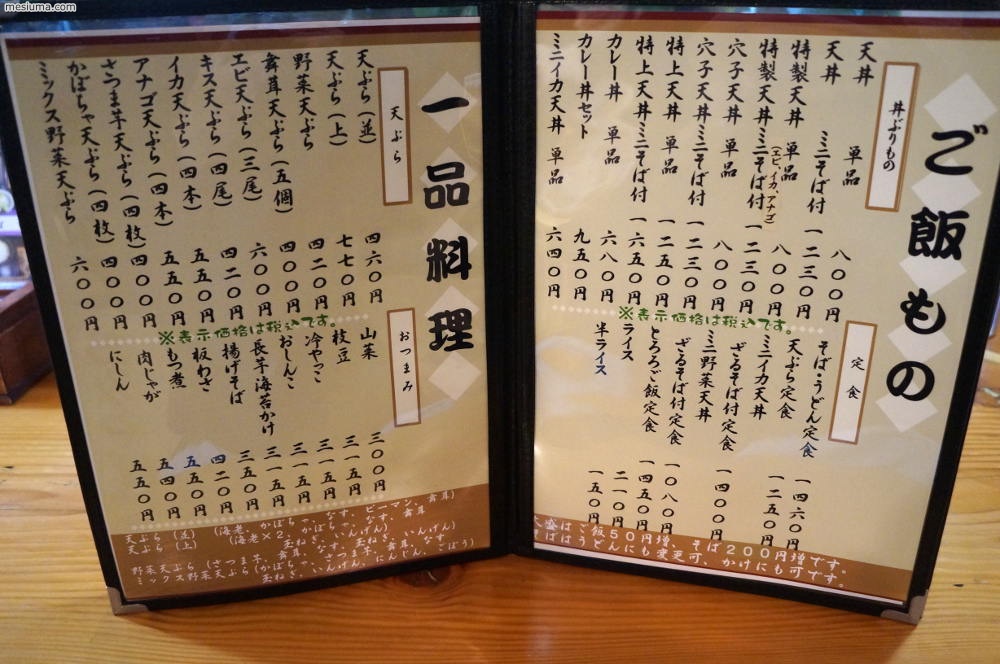 mesiuma.com
ご飯もの
丼ぶりもの
天丼 単品 八〇〇円
天丼 ミニそば付 一二三〇円
特製天丼 単品 八〇〇円
特製天丼ミニそば付 一二三〇円
(エビ、イカ、アナゴ)
穴子天丼 単品 八〇〇円
穴子天丼ミニそば付 一二三〇円
特上天丼 単品 一二五〇円
特上天丼ミニそば付 一六五〇円
カレー丼 単品 六八〇円
カレー丼セット 九五〇円
ミニイカ天丼 単品 六四〇円
※表示価格は税込です。
定食
そば・うどん定食 一四六〇円
天ぷら定食 一二五〇円
ミニイカ天丼
ざるそば付定食 一四〇〇円
ミニ野菜天丼
ざるそば付定食 一〇八〇円
とろろご飯定食 一四五〇円
ライス 二一〇円
半ライス 一五〇円
大盛はご飯50円増、そば200円増です。
そばはうどんにも変更可、かけにも可です。
一品料理
天ぷら
天ぷら(並) 四六〇円
天ぷら(上) 七七〇円
野菜天ぷら 四二〇円
舞茸天ぷら(五個) 四〇〇円
エビ天ぷら(三尾) 六〇〇円
キス天ぷら(四尾) 四二〇円
イカ天ぷら(四本) 五五〇円
アナゴ天ぷら(四本) 五五〇円
さつま芋天ぷら(四枚) 四〇〇円
かぼちゃ天ぷら(四枚) 四〇〇円
ミックス野菜天ぷら 六〇〇円
※表示価格は税込です。
おつまみ
山菜 三〇〇円
枝豆 三一五円
冷やっこ 三一五円
おしんこ 三一五円
長芋海苔かけ 三一五円
揚げそば 三五〇円
板わさ 四二〇円
もつ煮 五五〇円
肉じゃが 五四〇円
にしん 五五〇円
天ぷら (並) (海老、かぼちゃ、なす、ピーマン、舞茸)
天ぷら (上) (海老×2、かぼちゃ、なす、舞茸
玉ねぎ、いんげん)
野菜天ぷら (さつま芋、舞茸、なす、玉ねぎ、いんげん)
ミックス野菜天ぷら(かぼちゃ、なす、さつま芋、舞茸、
玉ねぎ、いんげん、にんじん、ごぼう)